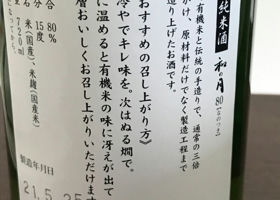 純米酒 和の月80【なのつき】
有機米と伝統の手造りで、通常の三倍
かけ、原材料だけでなく製造工程まで
造り上げたお酒です。
おすすめの召し上がり方》
冷やでキレ味を。次はぬる燗で。
に温めると有機米の味に冴えが出て
層おいしくお召し上がりいただけます
合 80%
分 15度
米(国産)、米麹(国産米
720ml
製造年月日
21.5.25